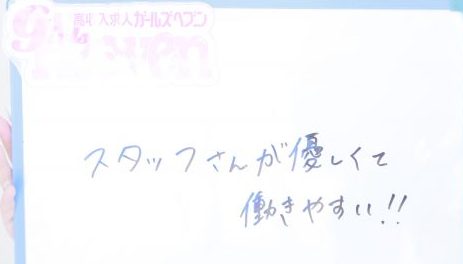 高収入求人ガールズヘブン
スタッフさんが優しくて
働きやすい!!